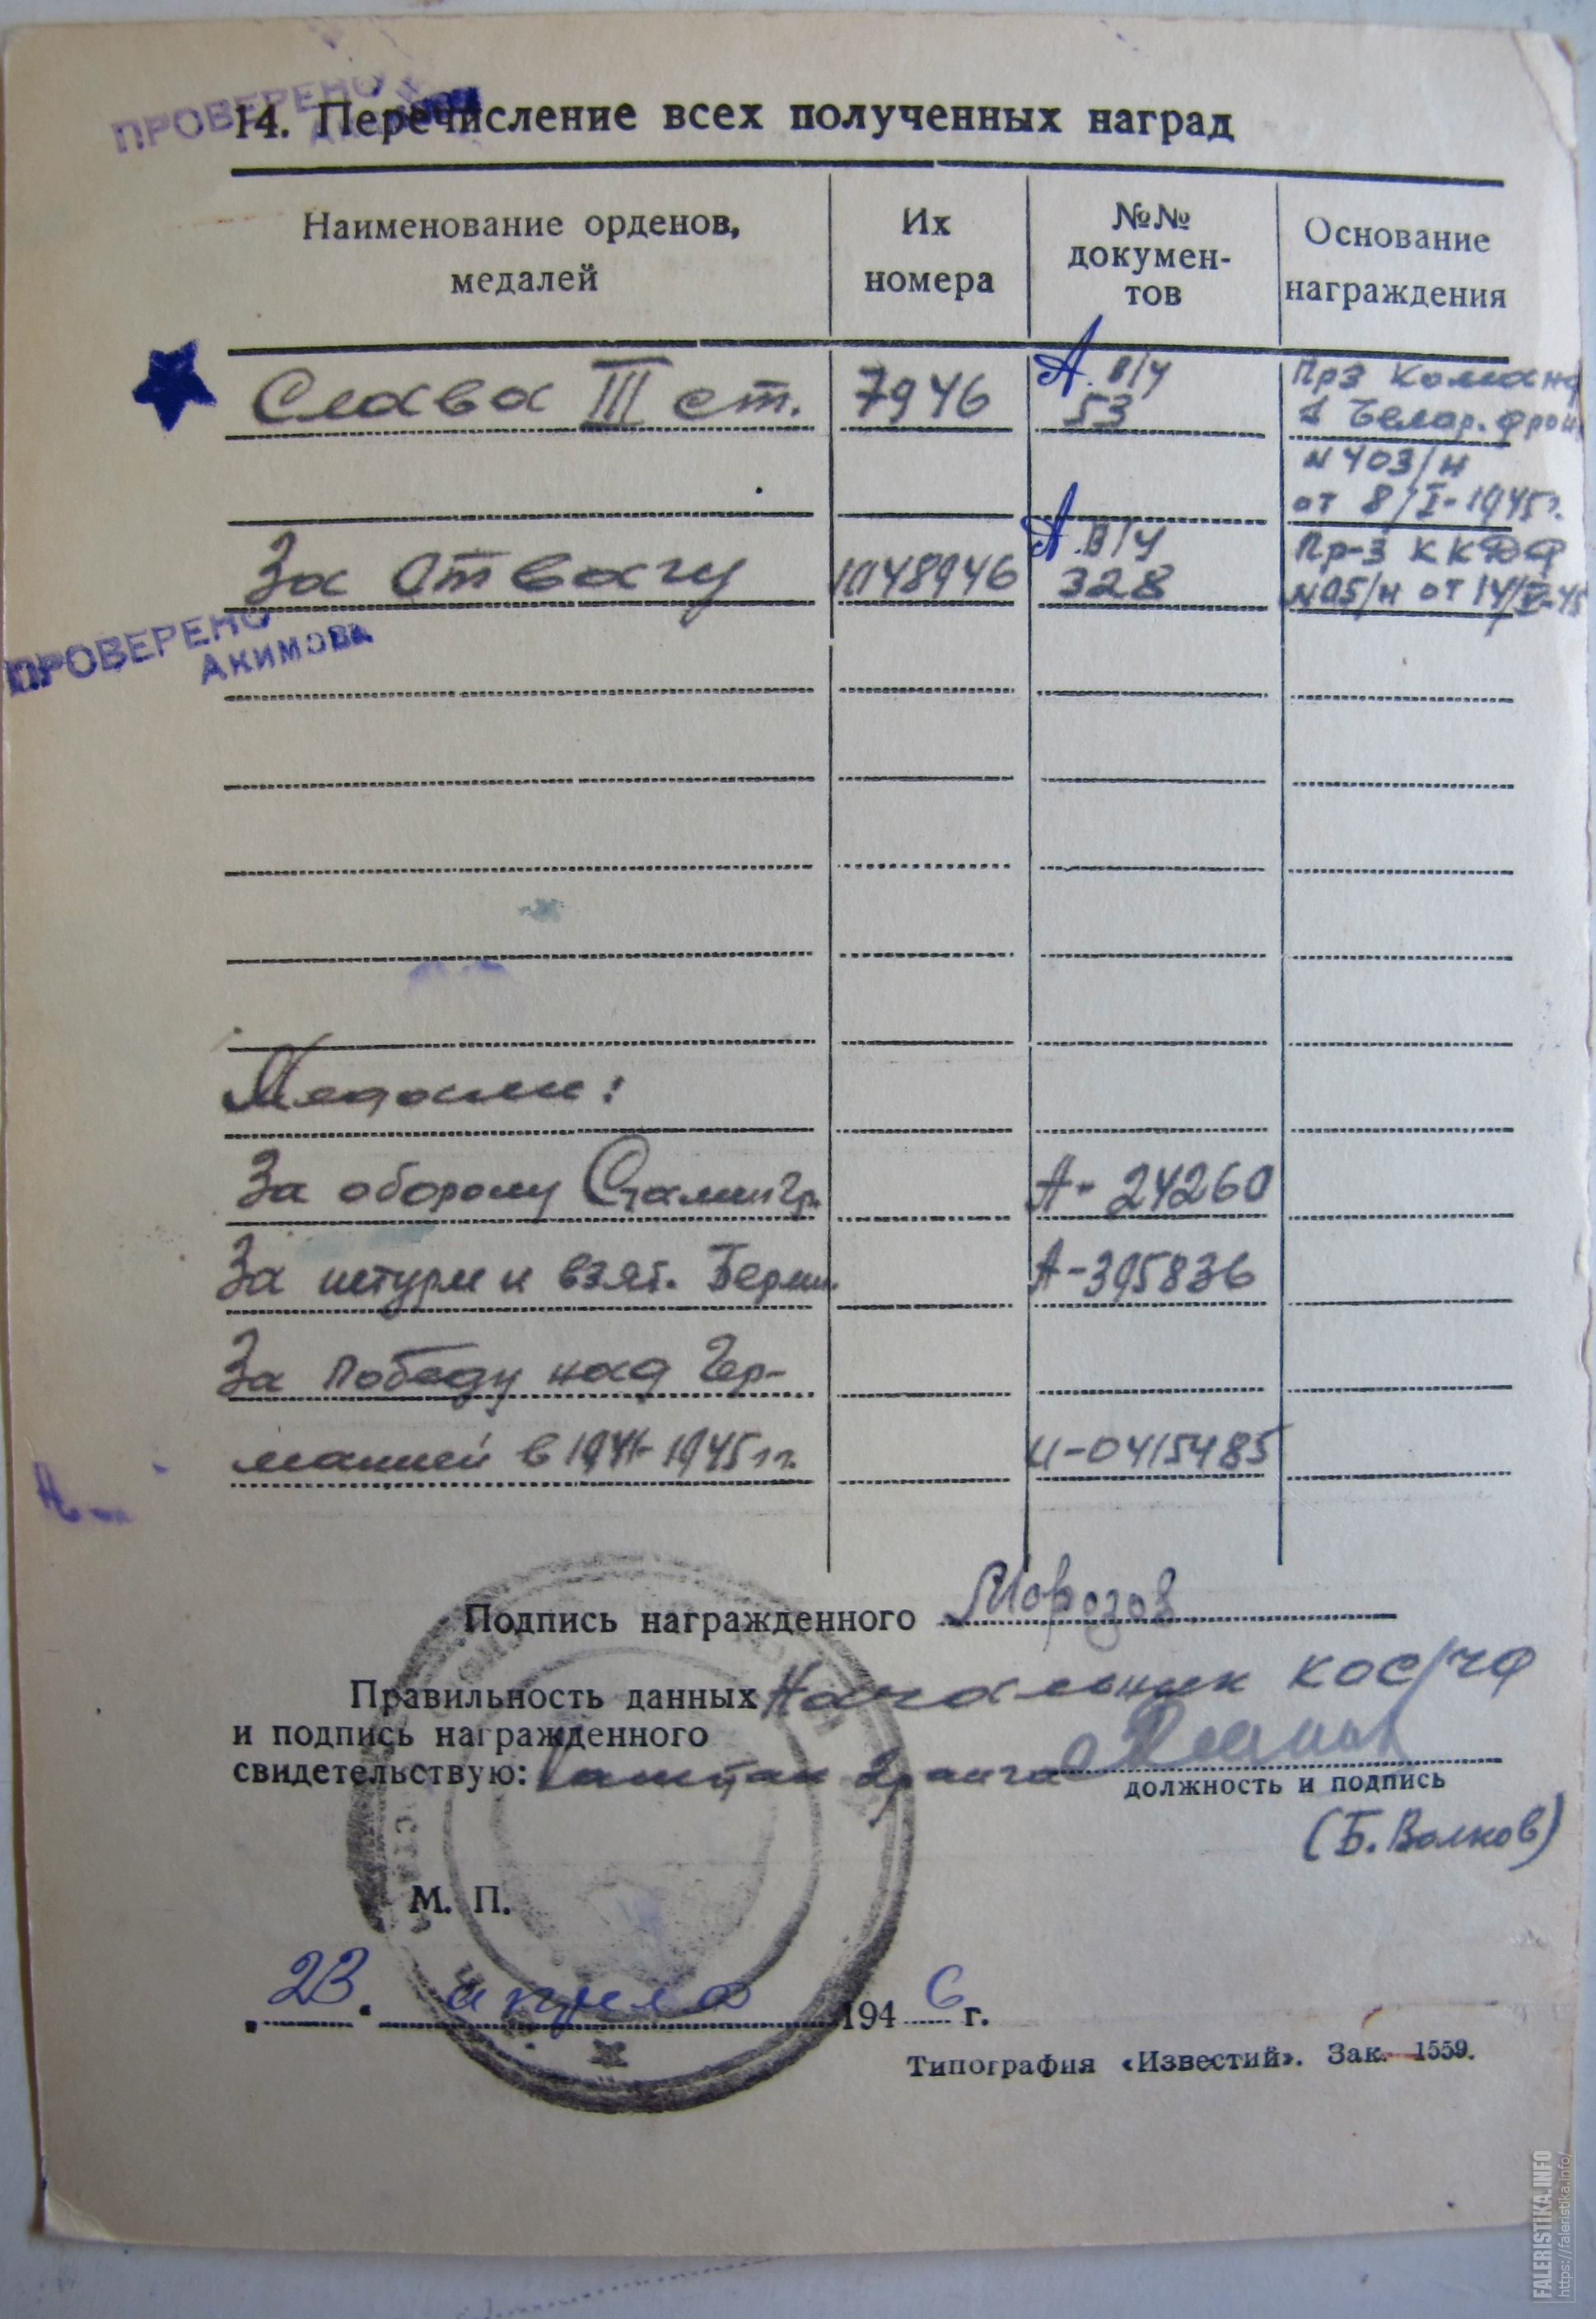 ПРОВЕРЕНО
14. Перечисление всех полученных наград
Наименование орденов, медалей
Их номера
№№ докумен-
тов
Основание награждения
Слава III ст. 7946 А. в/у 53 Прз Команд
1 Белар. фрон
№ 403/н
от 8/I-1945г.
За Отвагу 1048946 А. в/у 328 Пр-з ККДФ
№05/н от 14/V-45
ПРОВЕРЕНО
АКИМОВА
Медали:
За оборону Сталингр. А- 24260
За штурм и взят. Берлин. А-395836
За победу над Гер-
манией в 1941-1945 гг. И-0415485
Подпись награжденного Морозов
Правильность данных Начальник КОС/ЧФ
и подпись награжденного
свидетельствую: Капитан 2 ранга
должность и подпись
(Б. Волков)
М. П.
„23. апреля 1946 г.
Типография «Известий». Зак. 1559.
FALERISTIKA.INFO
https://faleristika.info/